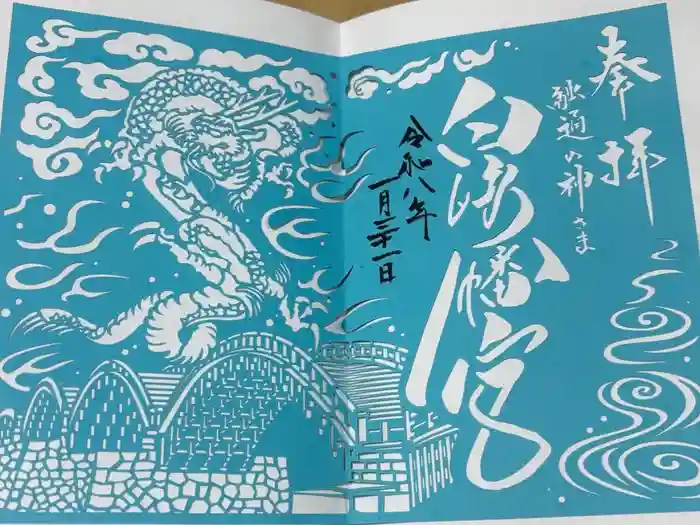 奉拝
融通の神さま
白崎八幡宮
令和八年
一月三十一日